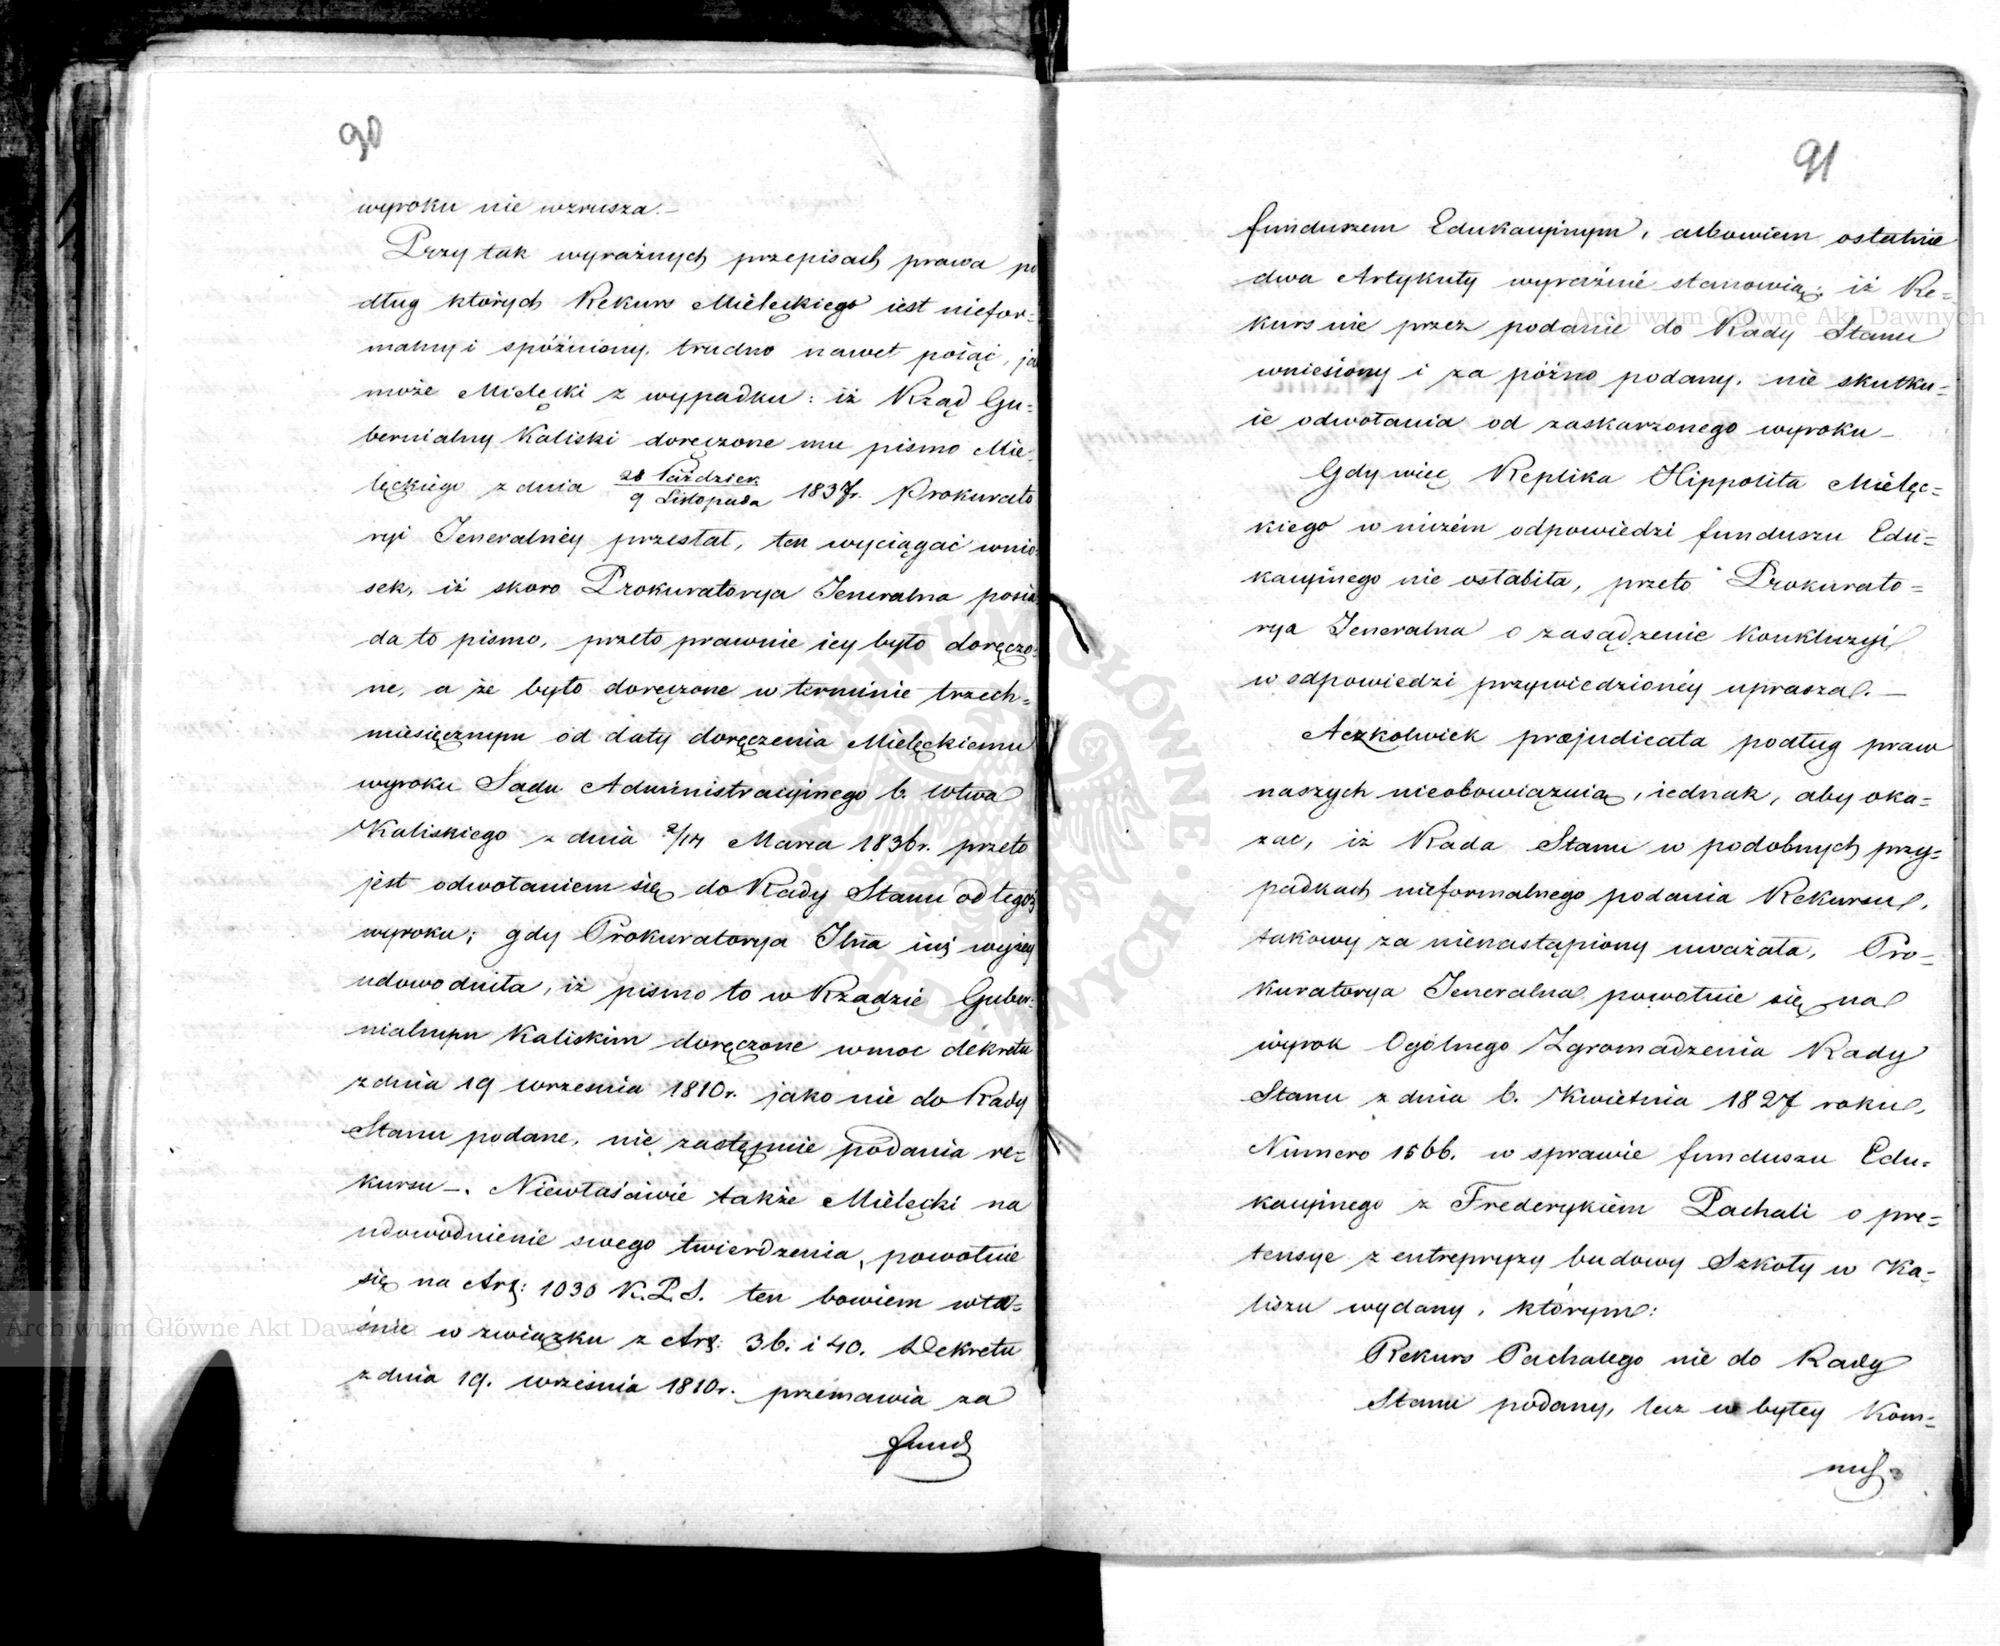 90
wyroku nie wzrusza.—
Przy tak wyraźnych przepisach prawa po
dług których Rekurs Mielęckiego iest niefor=
malny i spóźniony, trudno nawet poiąć, ja
może Mielęcki z wypadku: iż Rząd Gu=
bernialny Kaliski doręczone mu pismo Mie
lęckiego z dnia 28 Paździer. / 9 Listopada 1837r. Prokurato
ryi Jeneralnéy przesłał, ten wyciągać wnio
sek, iż skoro Prokuratorya Jeneralna posia
da to pismo, przeto prawnie iey było doręczo
ne, a że było doręczone w terminie trzech=
miesięcznym od daty doręczenia Mielęckiemu
wyroku Sądu Administracyjnego b. Wtwa
Kaliskiego z dnia 2/14 Marca 1836r. przeto
jest odwołaniem się do Rady Stanu od tegoż
wyroku; gdy Prokuratorya Jlna iuż wyżey
udowodniła, iż pismo to w Rządzie Guber=
nialnym Kaliskim doręczone w moc dekretu
z dnia 19 września 1810r. jako nie do Rady
Stanu podane, nie zastępuie podania re=
kursu—. Niewłaściwie także Mielęcki na
udowodnienie swego twierdzenia, powołuie
się na Art: 1030 K.P.S. ten bowiem wła=
śnie w związku z Art: 36. i 40. Dekretu
z dnia 19. września 1810r. przemawia za
fund
91
funduszem Edukacyinym, albowiem ostatnie
dwa Artykuły wyraźnie stanowią: iż Re=
kurs nie przez podanie do Rady Stanu
wniesiony i za późno podany, nie skutku=
ie odwołania od zaskarzonego wyroku—
Gdy więc Replika Hippolita Mielęc=
kiego w niczém odpowiedzi funduszu Edu=
kacyinego nie osłabiła, przeto Prokurato=
rya Jeneralna o zasądzenie konkluzyi
w odpowiedzi przywiedzionéy uprasza.—
Aczkolwiek præjudicata podług praw
naszych nieobowiązuią, iednak, aby oka=
zać, iż Rada Stanu w podobnych przy=
padkach nieformalnego podania Rekursu,
takowy za nienastąpiony uważała, Pro=
kuratorya Jeneralna powołuie się na
wyrok Ogólnego Zgromadzenia Rady
Stanu z dnia 6. Kwietnia 1827 roku,
Numero 1566. w sprawie funduszu Edu=
kacyinego z Frederykiem Pachali o pre=
tensye z entrepryzy budowy Szkoły w Ka=
liszu wydany, którym:
Rekurs Pachalego nie do Rady
Stanu podany, lecz w byłey Kom=
miss.
Archiwum Główne Akt Dawnych
Archiwum Główne Akt Dawnych
ARCHIWUM GŁÓWNE AKT DAWNYCH